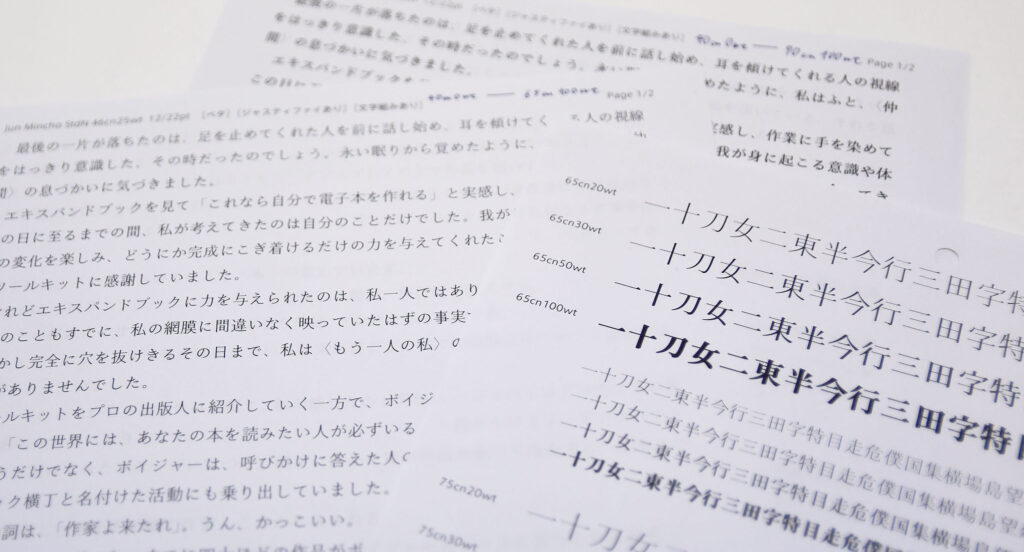 最後の一片が落ちたのは、足を止めてくれた人を前に話し始め、耳を傾けてくれる人の視線
をはっきり意識した、その時だったのでしょう。永い
めたように、私はふと、〈仲
間〉の息づかいに気づきました。
エキスパンドブック
実感し、作業に手を染めて
この日に
我が身に起こる意識や体
Page 1/2
Jun Mincho StdN 45cn25wt 12/22pt [ベタ] [ジャスティファイあり] [文字組みあり]
Page 1/2
最後の一片が落ちたのは、足を止めてくれた人を前に話し始め、耳を傾けてく
をはっきり意識した、その時だったのでしょう。永い眠りから覚めたように、
間〉の息づかいに気づきました。
エキスパンドブックを見て「これなら自分で電子本を作れる」と実感し、
の日に至るまでの間、私が考えてきたのは自分のことだけでした。我が
の変化を楽しみ、どうにか完成にこぎ着けるだけの力を与えてくれた
ツールキットに感謝していました。
れどエキスパンドブックに力を与えられたのは、私一人ではあり
のこともすでに、私の網膜に間違いなく映っていたはずの事実
かし完全に穴を抜けきるその日まで、私は〈もう一人の私〉
がありませんでした。
ールキットをプロの出版人に紹介していく一方で、ボイジ
「この世界には、あなたの本を読みたい人が必ずいる
うだけでなく、ボイジャーは、呼びかけに答えた人
ック横丁と名付けた活動にも乗り出していました。
詞は、「作家よ来たれ」。うん、かっこいい。
人の視線
65cn20wt
一十刀女二東半今行三田字特
65cn30wt
一十刀女二東半今行三田字特
65cn50wt
一十刀女二東半今行三田字特
65cn100wt
一十刀女二東半今行三田字特
一十刀女二東半今行三田字特目走危僕国集横場島望
一十刀女二東半今行三田字特目走危僕国集横場島望
一十刀女二東半今行三田字特目走危僕国集横場島
一十刀女二東半今行三田字特目走危僕国集横場
75cn20wt
一十刀女二東半今行
75cn30wt